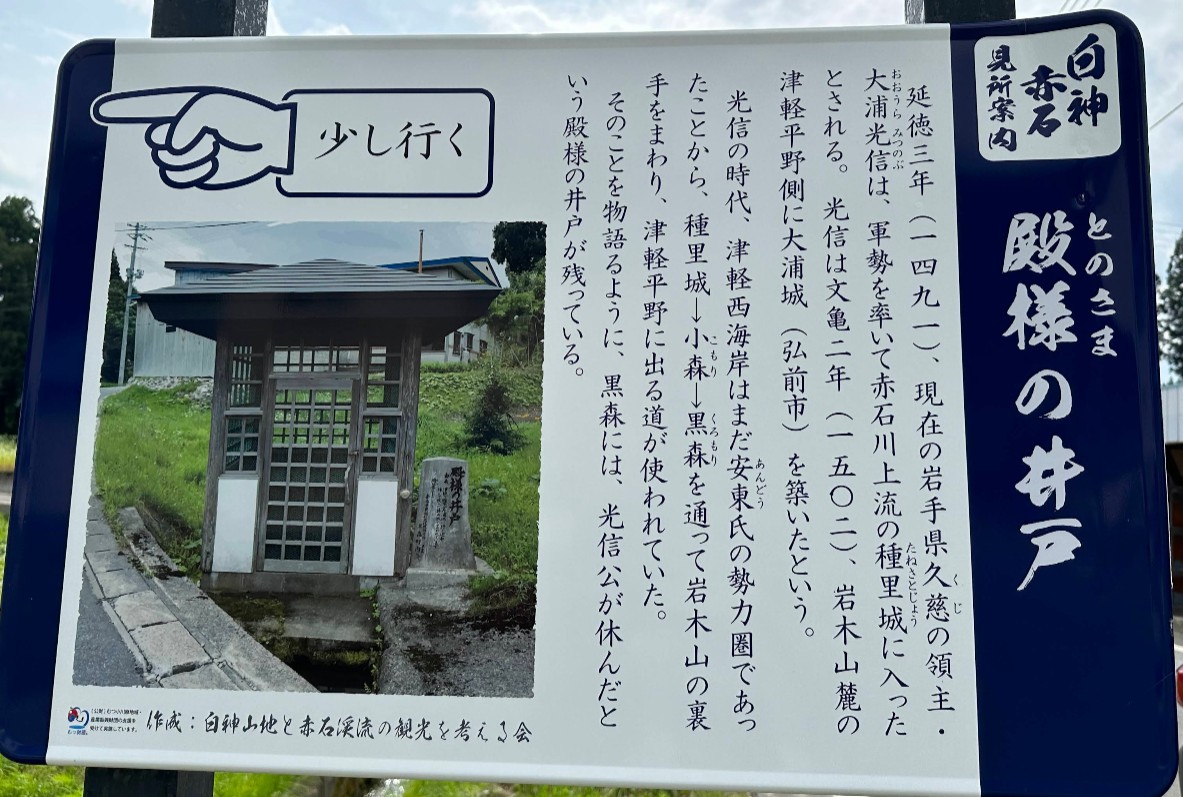 白神
赤石
見所案内
とのさま
殿様の井戸
延徳三年（一四九一）、現在の岩手県久慈の領主・
くじ
大浦光信は、軍勢を率いて赤石川上流の種里城に入った
おおうら みつのぶ
たねさとじょう
とされる。光信は文亀二年（一五〇二）、岩木山麓の
津軽平野側に大浦城（弘前市）を築いたという。
光信の時代、津軽西海岸はまだ安東氏の勢力圏であっ
あんどう
たことから、種里城→小森→黒森を通って岩木山の裏
こもり
くろもり
手をまわり、津軽平野に出る道が使われていた。
そのことを物語るように、黒森には、光信公が休んだと
いう殿様の井戸が残っている。
少し行く
殿様の井戸
作成：白神山地と赤石渓流の観光を考える会